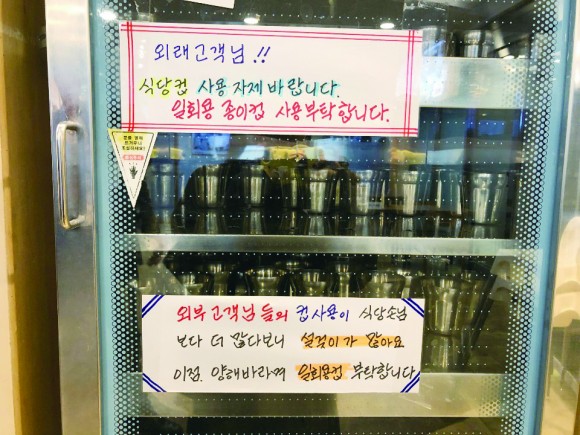 외래고객님!!
식당컵 사용 자제 바랍니다.
일회용 종이컵 사용부탁합니다.
외부 고객님 들의 컵사용이 식당손님
보다 더 많다보니 설걷이가 많아요
이점. 양해바라며 일회용컵 부탁합니다